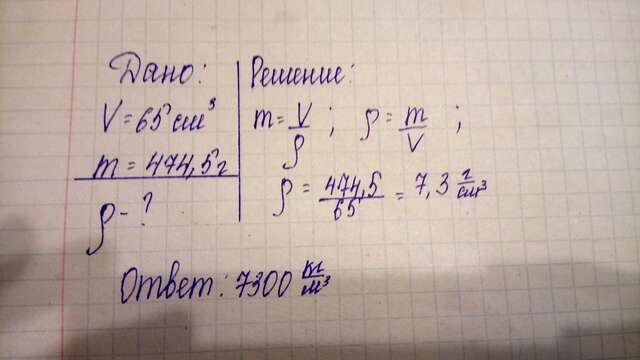 Дано:
V = 65 см³
m = 474,5 г
ρ - ?
Решение:
m = V/ρ ; ρ = m/V ;
ρ = 474,5/65 = 7,3 г/см³
Ответ: 7300 кг/м³